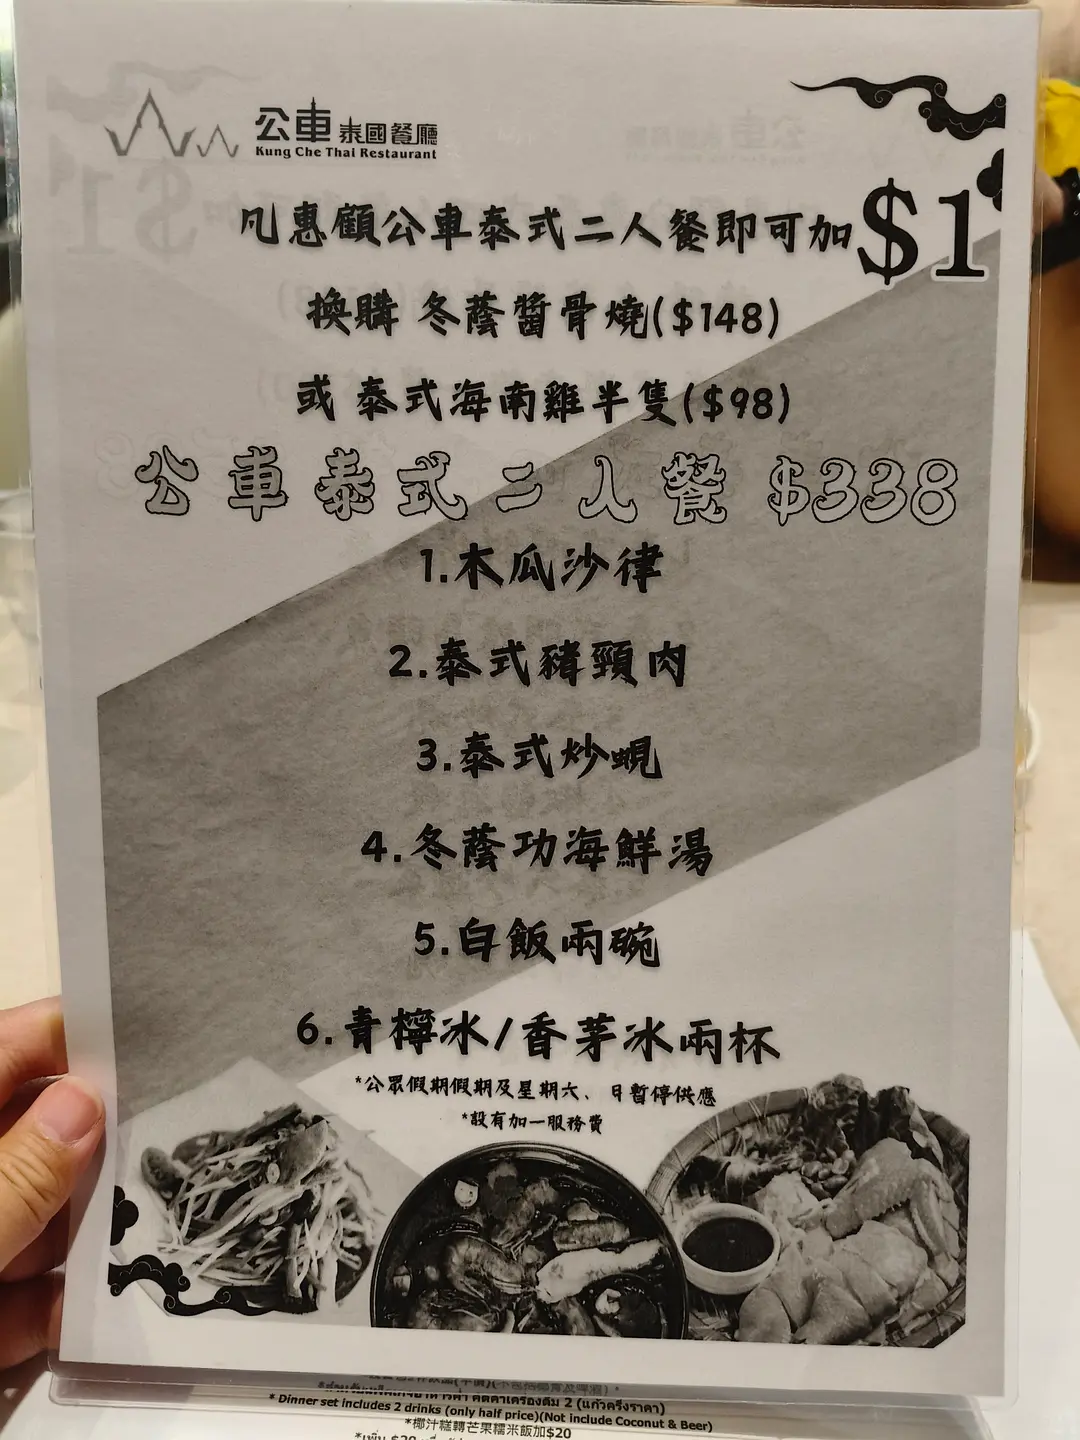 公車泰國餐廳
Kung Che Thai Restaurant
凡惠顧公車泰式二人餐即可加$1
換購 冬蔭醬骨燒($148)
或 泰式海南雞半隻($98)
公車泰式二人餐 $338
1.木瓜沙律
2.泰式豬頸肉
3.泰式炒蜆
4.冬蔭功海鮮湯
5.白飯兩碗
6.青檸冰/香茅冰兩杯
*公眾假期假期及星期六、日暫停供應
*設有加一服務費
* Dinner set includes 2 drinks (only half price)(Not include Coconut & Beer)
*椰汁糕轉芒果糯米飯加$20